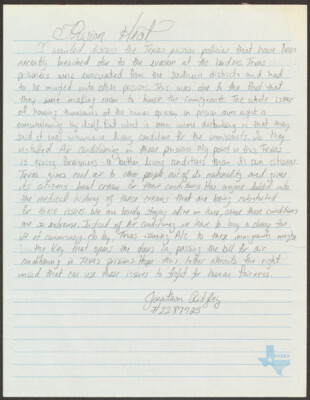 Prison Heat
I wanted discuss the Texas prison policies that have been
recently breached due to the invasion at the borders. Texas
prisoners were evacuated from the southern districts and had
to be mingled with other prisons. This was due to the fact that
they were making room to house the immigrants. The whole issue
of housing thousands of in prison over night is
overwhelming by itself. But what is even more disturbing is that they
said it was inhumane living conditions for the immigrants. So they
installed Air conditioning in those prisons. My point is this Texas
is giving foreigners better living conditions than its own citizens.
Texas gives cool air to other people out of its nationality and gives
its citizens heat cream for their conditions. Has anyone looked into
the medical history of these creams that are being substituted
for these issues. We are barely staying alive in here, some these conditions
are so extreme. Instead of Air conditioning we have to buy a cooling
at commissary. Texas issuing A/C to these immigrants maybe
the Key that opens the doors in passing the bill for air
conditioning in Texas prisons. Hope this letter attracts the right
mind that can use these issues to fight for human fairness.
Jonathan
#2287725
TEXAS